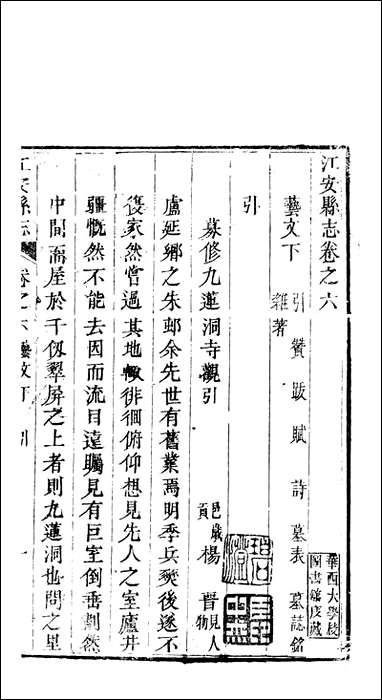 江安縣志卷之六
藝文下 引 贊 跋 賦 詩 墓表 墓誌銘
雜著
華西大學校
圖書館庋藏
引
募修九蓮洞寺觀引
邑歲貢 楊晋 見人物
盧延鄉之朱邨余先世有舊業焉明季兵燹後遂不
復家然嘗過其地輙徘徊俯仰想見先人之室廬井
疆慨然不能去因而流目遠矚見有巨室倒垂劃然
中間而屋於千仭翠屏之上者則九蓮洞也問之里
江安縣志 卷之六 藝文下 引 一